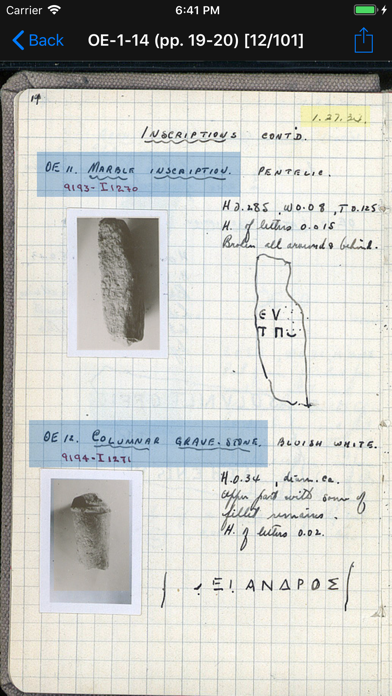 Carrier 6:41 PM
Back OE-1-14 (pp. 19-20) [12/101]
19
1.27.34.
INSCRIPTIONS CONT'D.
OE 11. MARBLE INSCRIPTION. PENTELIC.
9193-I 1270
H 0.285, W 0.08, T 0.125
H. of letters 0.015
Broken all around & behind.
Ε V
Τ Π
OE 12. COLUMNAR GRAVE-STONE. BLUISH WHITE.
9194-I 1271
H. 0.34, diam. ca.
Upper part with some of
fillet remains.
H. of letters 0.02.
Ε Ι ΑΝΔΡΟΣ